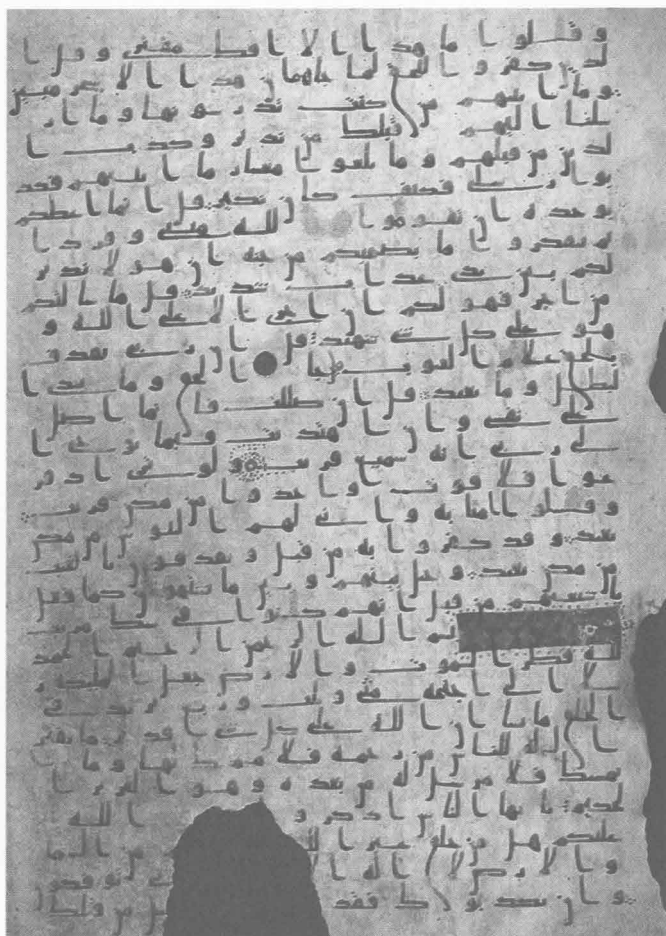 و قلوا ما هذا الا افك مفترى و قل ا
لذين كفروا للحق لما جاهم ان هذا الا سحر مبين
وما اتينهم من كتب يدرسونها وما ار
سلنا اليهم قبلك من نذير وكذب ا
لذين من قبلهم وما بلغوا معشار ما اتينهم فكذ
بوا رسلي فكيف كان نكير قل انما اعظكم
بوحدة ان تقوموا لله مثنى و فردا
ثم تتفكروا ما بصحبكم من جنة ان هو الا نذير
لكم بين يدي عذاب شديد قل ما سالتكم
من اجر فهو لكم ان اجري الا على الله و
هو على كل شي شهيد قل ان ربي يقذف
بالحق علم الغيوب قل جا الحق و ما يبدي ا
لبطل و ما يعيد قل ان ضللت فانما اضل
على نفسي وان اهتديت فبما يوحي ا
لي ربي انه سميع قريب و لو ترى اذ فز
عوا فلا فوت واخذوا من مكن قريب
و قلوا امنا به وانى لهم التناوش من مكن
بعيد و قد كفروا به من قبل و يقذفون بالغيب
من مكن بعيد و حيل بينهم و بين ما يشتهون كما فعل
باشيعهم من قبل انهم كانوا في شك مريب
بسم الله الرحمن الرحيم الحمد
لله فطر السموت والارض جعل المليكة ر
سلا اولي اجنحة مثنى و ثلث و ربع يزيد في
الخلق ما يشا ان الله على كل شي قدير ما يفتح
الله للناس من رحمة فلا ممسك لها و ما
يمسك فلا مرسل له من بعده و هو العزيز ا
لحكيم يايها الناس اذكروا الله
عليكم هل من خلق غير الله من السما
والارض لا اله توفكو
ن وان يكذبوك فقد من قبلك